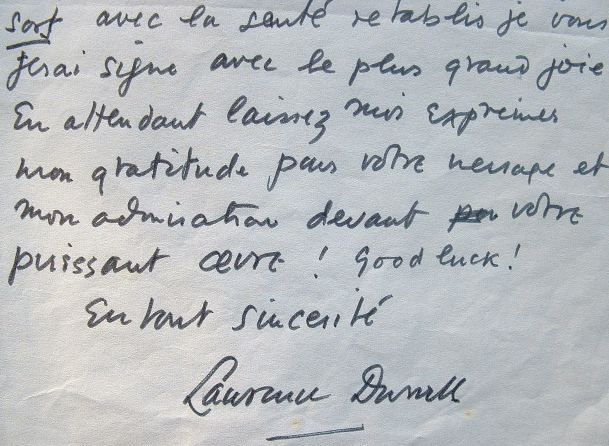 sort avec la santé retablis je vous
ferai signe avec le plus grand joie
En attendant laissez mois exprimer
mon gratitude pour votre message et
mon admiration devant votre
puissant œuvre ! Good luck !
En tout sincerité
Lawrence Durrell